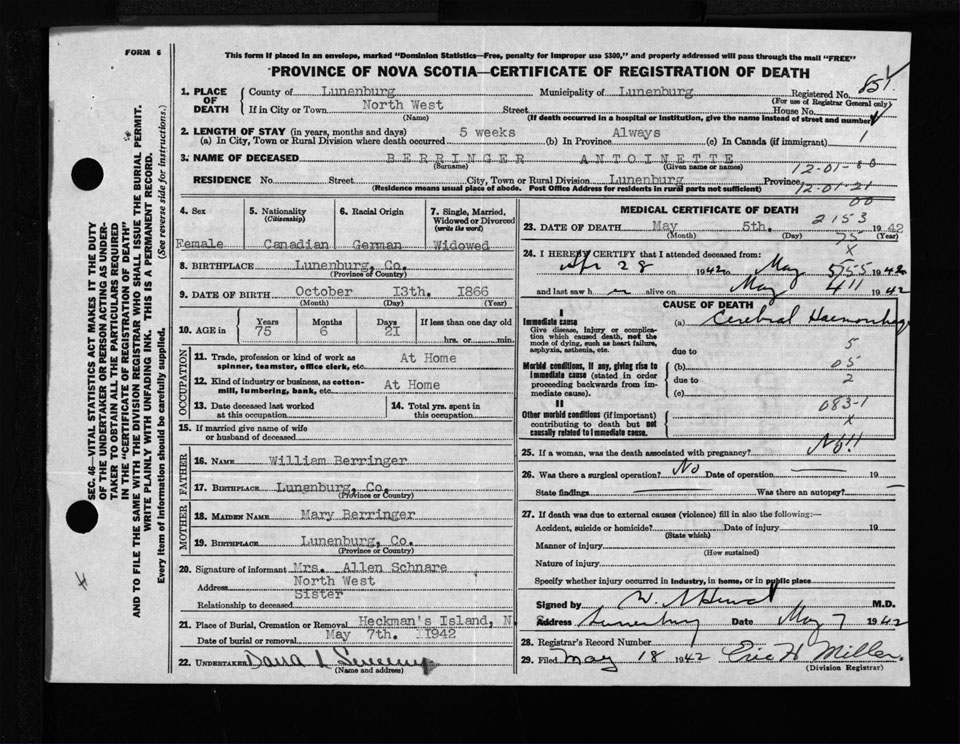 FORM 6
SEC. 46—VITAL STATISTICS ACT MAKES IT THE DUTY
OF THE UNDERTAKER OR PERSON ACTING AS UNDER-
TAKER TO OBTAIN ALL THE PARTICULARS REQUIRED
IN THE "CERTIFICATE OF REGISTRATION OF DEATH"
AND TO FILE THE SAME WITH THE DIVISION REGISTRAR WHO SHALL ISSUE THE BURIAL PERMIT.
WRITE PLAINLY WITH UNFADING INK. THIS IS A PERMANENT RECORD.
Every item of information should be carefully supplied. (See reverse side for instructions.)
This form if placed in an envelope, marked "Dominion Statistics—Free, penalty for improper use $300," and properly addressed will pass through the mail "FREE"
PROVINCE OF NOVA SCOTIA—CERTIFICATE OF REGISTRATION OF DEATH
1. PLACE OF DEATH County of Lunenburg Municipality of Lunenburg Registered No. 851
(For use of Registrar General only)
If in City or Town North West Street House No.
(Name) (If death occurred in a hospital or institution, give the name instead of street and number)
2. LENGTH OF STAY (in years, months and days) 5 weeks Always 1
(a) In City, Town or Rural Division where death occurred (b) In Province (c) In Canada (if immigrant)
3. NAME OF DECEASED BERRINGER ANTOINETTE
(Surname) (Given name or names) 12-01-00
RESIDENCE No. Street City, Town or Rural Division Lunenburg Province 12-01-21
(Residence means usual place of abode. Post Office Address for residents in rural parts not sufficient) 00
4. Sex 5. Nationality (Citizenship) 6. Racial Origin 7. Single, Married, Widowed or Divorced (write the word)
Female Canadian German Widowed
8. BIRTHPLACE Lunenburg, Co.
(Province of Country)
9. DATE OF BIRTH October 13th. 1866
(Month) (Day) (Year)
10. AGE in Years 75 Months 6 Days 21 If less than one day old hrs. or min.
OCCUPATION
11. Trade, profession or kind of work as spinner, teamster, office clerk, etc. At Home
12. Kind of industry or business, as cotton-mill, lumbering, bank, etc. At Home
13. Date deceased last worked at this occupation 14. Total yrs. spent in this occupation
15. If married give name of wife or husband of deceased
FATHER
16. NAME William Berringer
17. BIRTHPLACE Lunenburg, Co.
(Province or Country)
MOTHER
18. MAIDEN NAME Mary Berringer
19. BIRTHPLACE Lunenburg, Co.
(Province or Country)
20. Signature of informant Mrs. Allen Schnare
Address North West
Relationship to deceased Sister
21. Place of Burial, Cremation or Removal Heckman's Island, N.
Date of burial or removal May 7th. 1942
22. UNDERTAKER
(Name and address)
MEDICAL CERTIFICATE OF DEATH
2153
23. DATE OF DEATH May 5th. 1942
(Month) (Day) (Year)
75
x
24. I HEREBY CERTIFY that I attended deceased from:
Apr 28 1942 to May 5 1942
and last saw h er alive on May 4 1942
CAUSE OF DEATH
I
Immediate cause (a) Cerebral Haemorrhage
Give disease, injury or complication which caused death, not the mode of dying, such as heart failure, asphyxia, asthenia, etc.
due to 5
Morbid conditions, if any, giving rise to immediate cause (stated in order proceeding backwards from immediate cause).
(b) 05
due to 2
(c)
II 083-1
Other morbid conditions (if important) contributing to death but not causally related to immediate cause. x
25. If a woman, was the death associated with pregnancy? No!!
26. Was there a surgical operation? No Date of operation 19
State findings Was there an autopsy?
27. If death was due to external causes (violence) fill in also the following:—
Accident, suicide or homicide? Date of injury 19
(State which)
Manner of injury
(How sustained)
Nature of injury
Specify whether injury occurred in industry, in home, or in public place
Signed by M.D.
Address Lunenburg Date May 7 1942
28. Registrar's Record Number
29. Filed May 18 1942 Eric H Miller.
(Division Registrar)